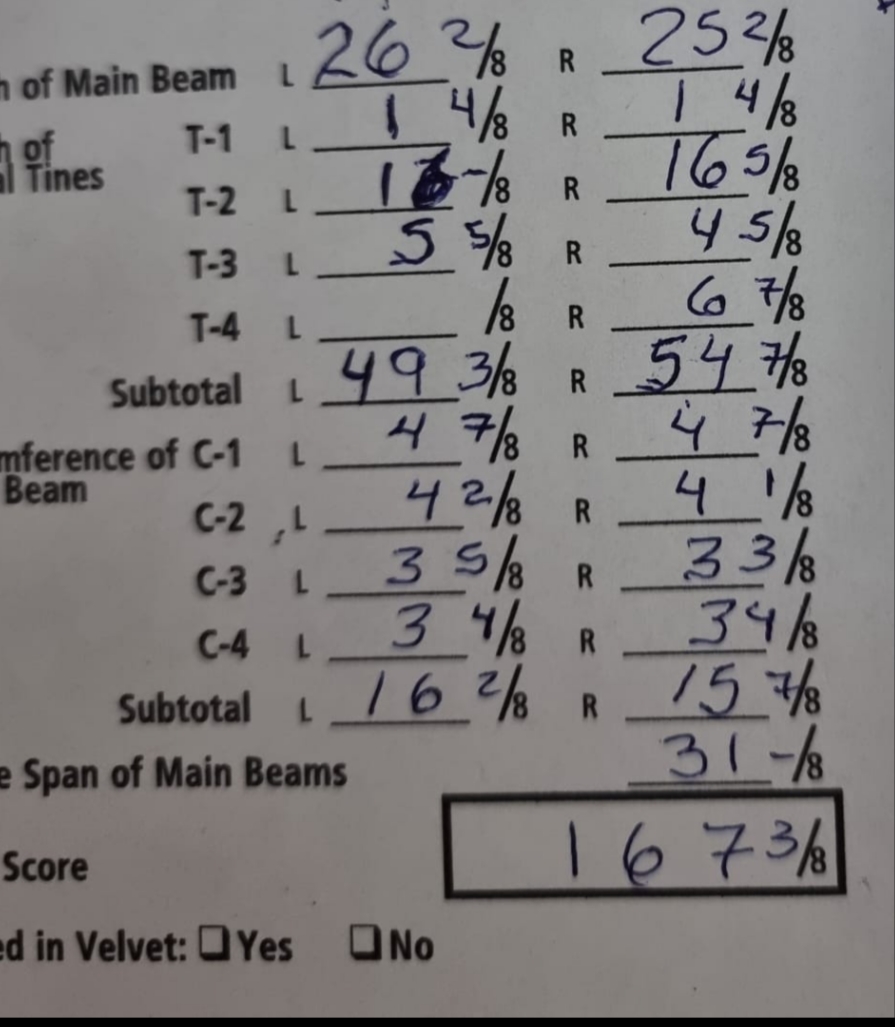 h of Main Beam L 26 2/8 R 25 2/8
h of T-1 L 1 4/8 R 1 4/8
al Tines
T-2 L 16 -/8 R 16 5/8
T-3 L 5 5/8 R 4 5/8
T-4 L /8 R 6 7/8
Subtotal L 49 3/8 R 54 7/8
mference of C-1 L 4 7/8 R 4 7/8
Beam
C-2 L 4 2/8 R 4 1/8
C-3 L 3 5/8 R 3 3/8
C-4 L 3 4/8 R 3 4/8
Subtotal L 16 2/8 R 15 7/8
e Span of Main Beams 31 -/8
Score 167 3/8
ed in Velvet: ☐ Yes ☐ No